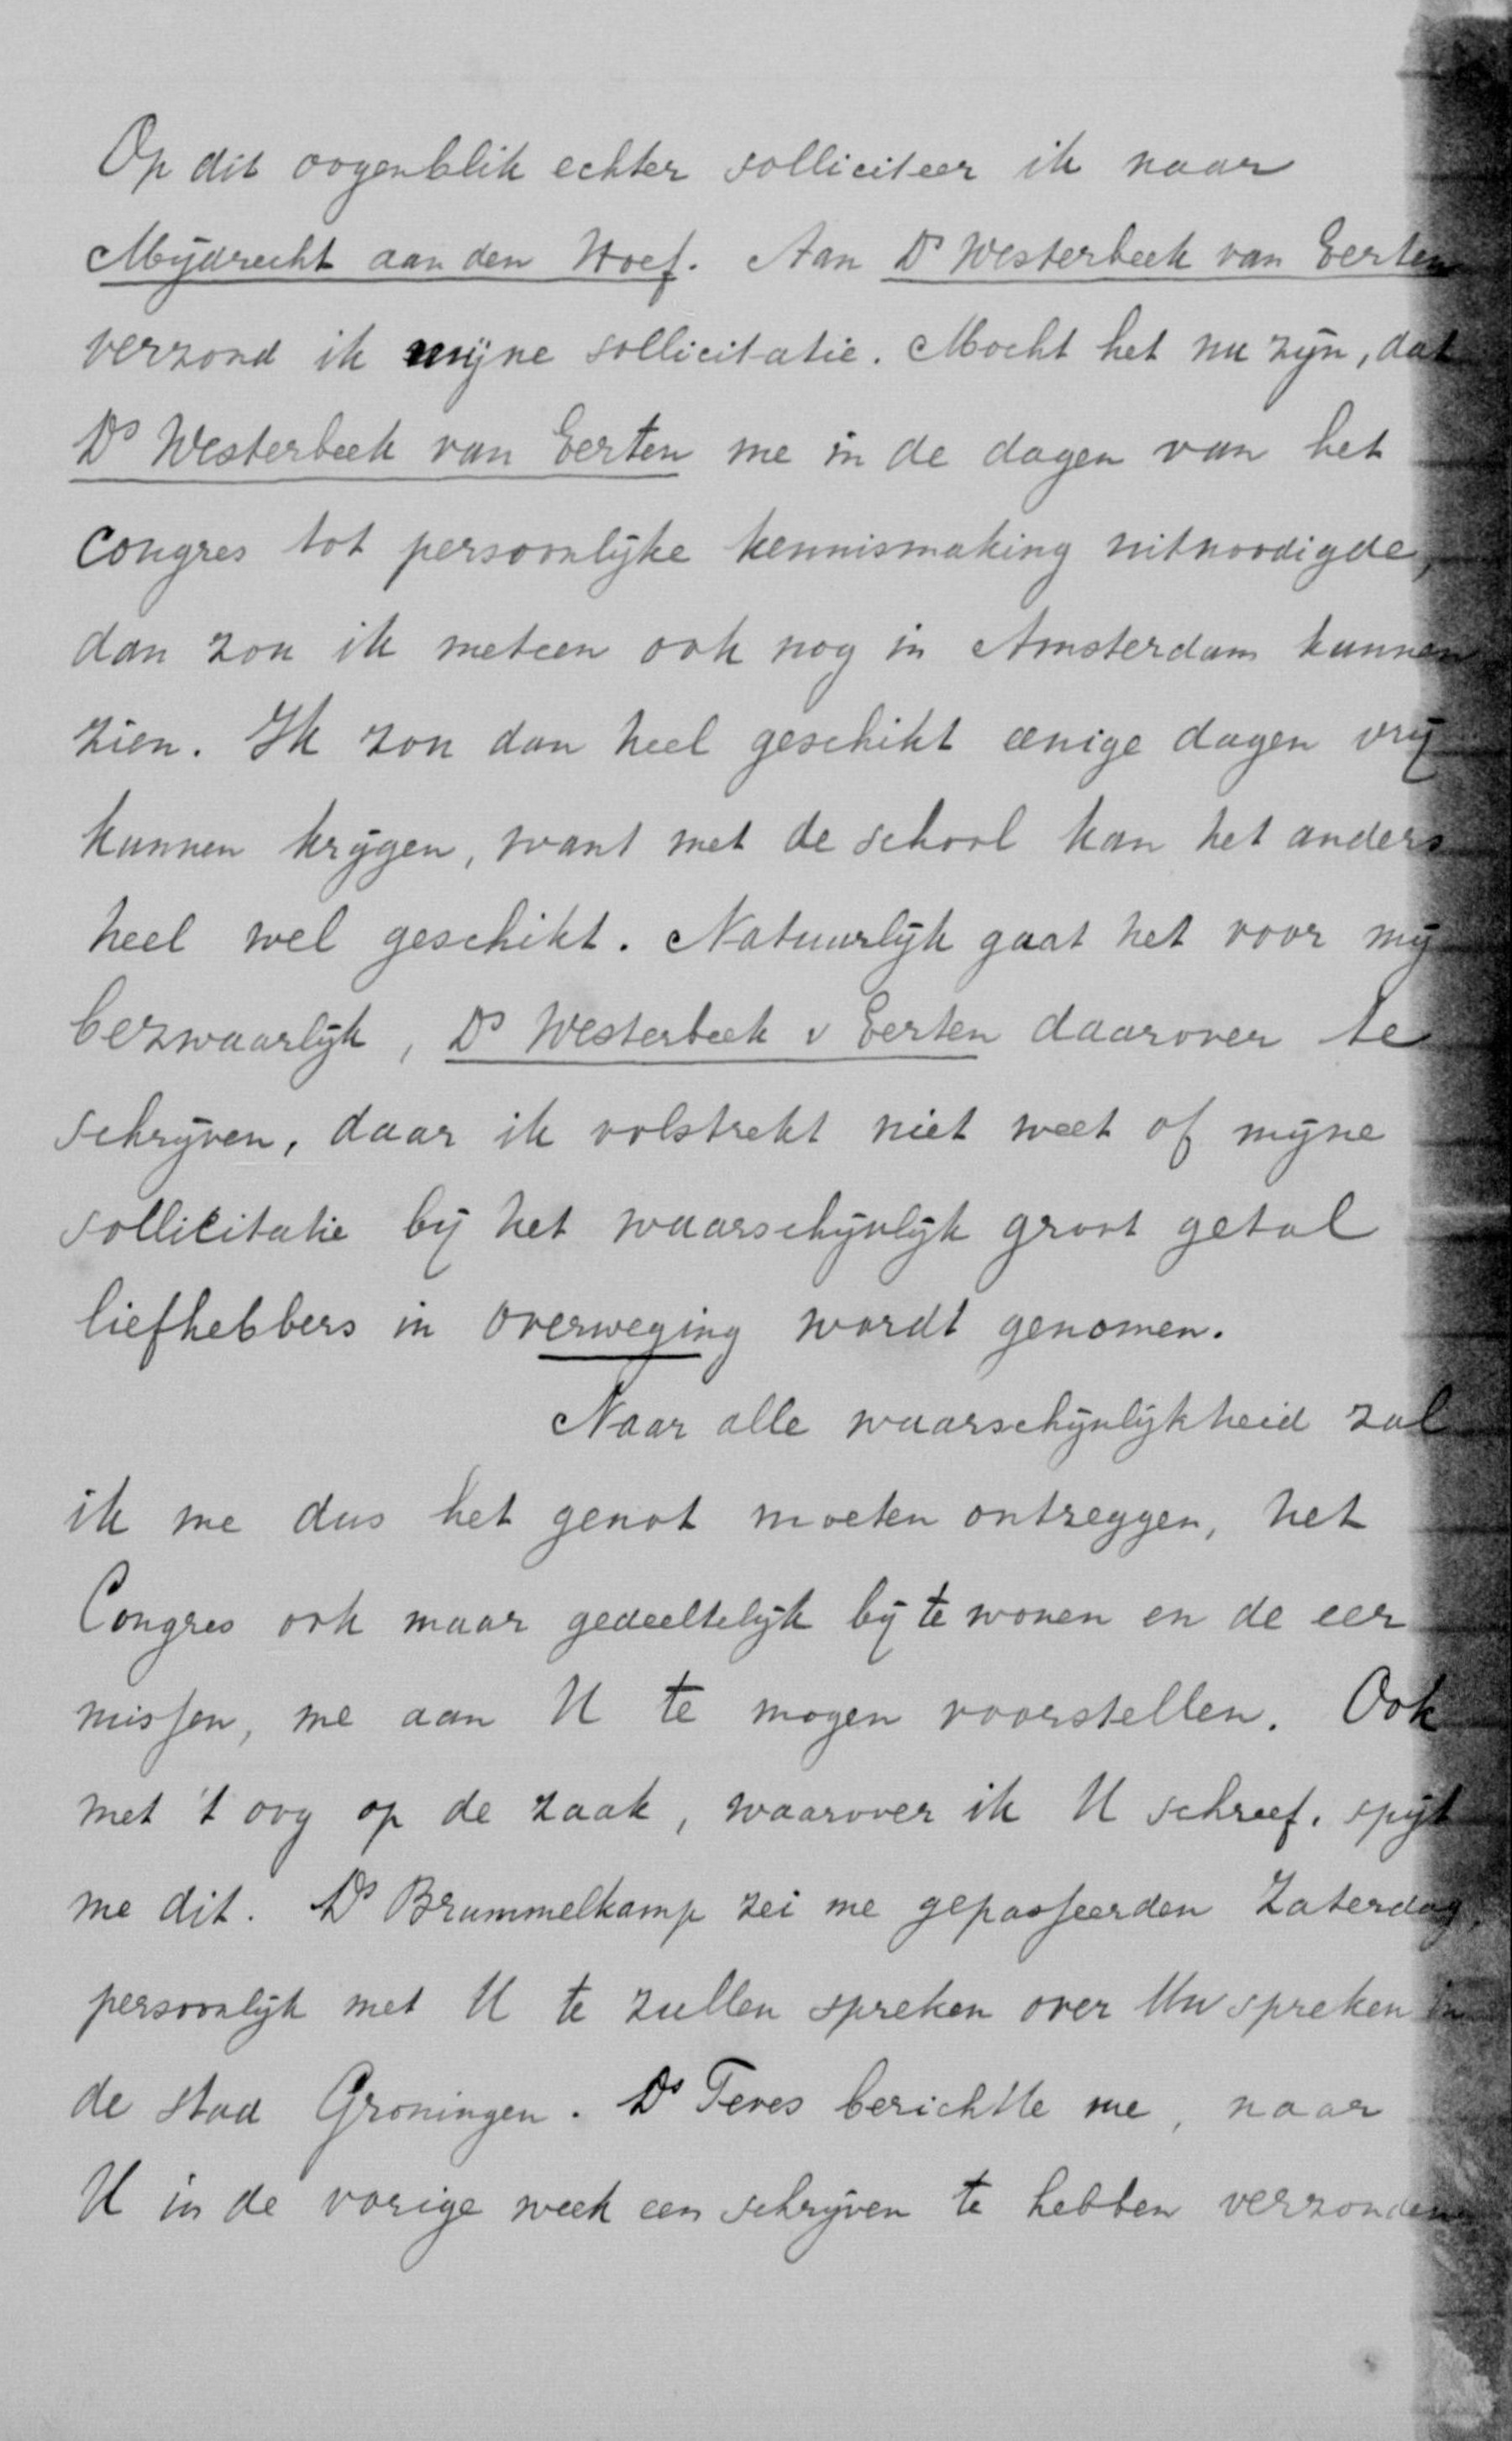 Op dit oogenblik echter solliciteer ik naar
Mijdrecht aan den Hoef. Aan Ds Westerbeek van Eerten
verzond ik mijne sollicitatie. Mocht het nu zijn, dat
Ds Westerbeek van Eerten me in de dagen van het
Congres tot persoonlijke kennismaking uitnoodigde,
dan zou ik meteen ook nog in Amsterdam kunnen
zien. Ik zou dan heel geschikt eenige dagen vrij
kunnen krijgen, want met de school kan het anders
heel wel geschikt. Natuurlijk gaat het voor mij
bezwaarlijk, Ds Westerbeek v Eerten daarover te
schrijven, daar ik volstrekt niet weet of mijne
sollicitatie bij het waarschijnlijk groot getal
liefhebbers in overweging wordt genomen.
Naar alle waarschijnlijkheid zal
ik me dus het genot moeten ontzeggen, het
Congres ook maar gedeeltelijk bij te wonen en de eer
missen, me aan U te mogen voorstellen. Ook
met 't oog op de zaak, waarover ik U schreef, spijt
me dit. Ds Brummelkamp zei me gepasseerden Zaterdag,
persoonlijk met U te zullen spreken over Uw spreken in
de stad Groningen. Ds Teves berichtte me, naar
U in de vorige week een schrijven te hebben verzonden